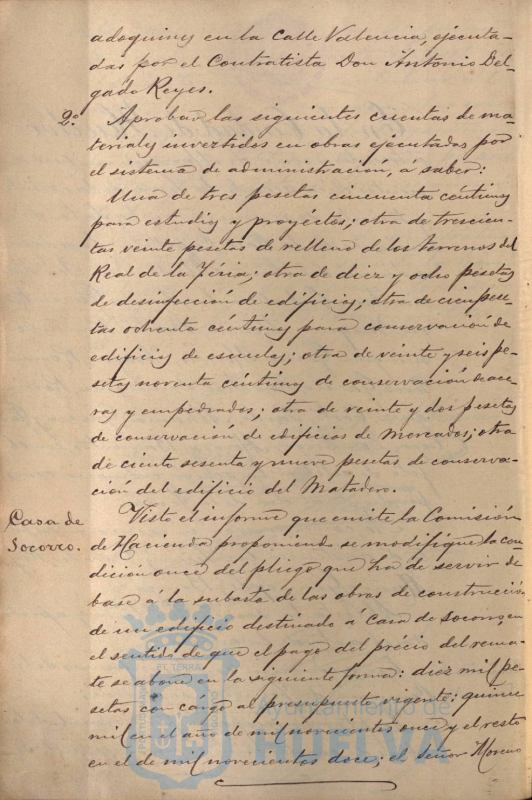 adoquines en la calle Valencia, ejecuta-
das por el Contratista Don Antonio Del-
gado Reyes.
2º Aprobar las siguientes cuentas de ma-
teriales invertidos en obras ejecutadas por
el sistema de administración, á saber:
Una de tres pesetas cincuenta céntimos
para estudios y proyéctos; otra de trescien-
tas veinte pesetas de relleno de los terrenos del
Real de la Féria; otra de diez y ocho pesetas
de desinfección de edificios; otra de cien pese-
tas ochenta céntimos para conservación de
edificios de escuelas; otra de veinte y seis pe-
setas noventa céntimos de conservación de ace-
ras y empedrados; otra de veinte y dos pesetas
de conservación de edificios de Mercados; otra
de ciento sesenta y nueve pesetas de conserva-
ción del edificio del Matadero.
Casa de
Socorro.
Visto el informe que emite la Comisión
de Hacienda proponiendo se modifique la con
dición once del pliego que ha de servir de
base á la subasta de las obras de construcción
de un edificio destinado á Casa de Socorro, en
el sentido de que el pago del précio del rema-
te se abone en la siguiente forma: diez mil pe-
setas con cárgo al presupuesto vigente: quince
mil en el año de mil novecientos once y el resto
en el de mil novecientos doce; el Señor Moreno
Ayuntamiento de
HUELVA